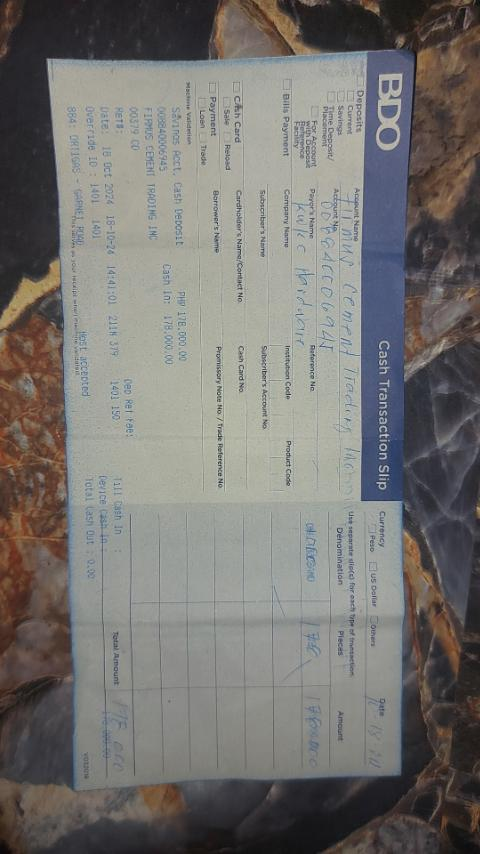 BDO
Cash Transaction Slip
Deposits
Current
Savings
Time Deposit/
Placement
For Account
with Deposit
Reference
Facility
Account Name
Cement Trading
Account No.
Payor's Name
KWLC Hardware
Reference No.
Bills Payment
Company Name
Institution Code
Product Code
Subscriber's Name
Subscriber's Account No.
Cash Card
Sale
Reload
Cardholder's Name/Contact No.
Cash Card No.
Payment
Loan
Trade
Borrower's Name
Promissory Note No. / Trade Reference No.
Currency
Peso
US Dollar
Others
Date
Use separate slip(s) for each type of transaction.
Denomination
Pieces
Amount
Total Amount
178,000
178,000.00
Machine Validation
Savings Acct. Cash Deposit PHP 178,000.00
008840006945 Cash In: 178,000.00
FIRMUS CEMENT TRADING INC
00379 CO
Dep Ref Fee:
Ref#:
1401 150
Till Cash In :
Date: 18 Oct 2024 18-10-24 14:41:01 211N 379
Device Cash In :
Override ID : 1401 1401
Host accepted
Total Cash Out : 0.00
884: ORTIGAS - GARNET ROAD
This serves as your receipt when machine validated.